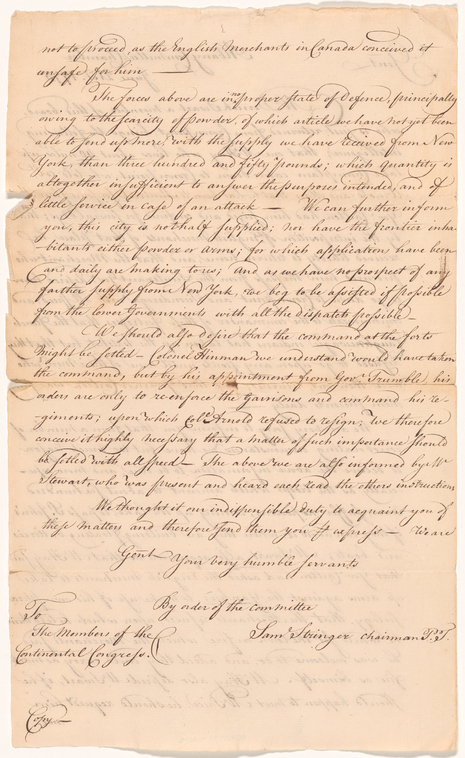 not to proceed, as the English Merchants in Canada conceived it
unsafe for him —
The forces above are in no proper state of Defence, principally
owing to the scarcity of powder, of which article we have not yet been
able to send up more, with the supply we have received from New
York, than three hundred and fifty pounds; which quantity is
altogether insufficient to answer the purposes intended, and of
little service in case of an attack — We can further inform
you, this city is not half supplied; nor have the frontier inha-
-bitants either powder or arms; for which applications have been
and daily are making to us; And as we have no prospect of any
farther supply from New York, we beg to be assisted if possible
from the lower Governments with all the dispatch possible
We should also desire that the command at the forts
might be setled — Colonel Hinman we understand would have taken
the command, but by his appointment from Govr. Trumble, his
orders are only to reenforce the Garrisons and command his re-
-giments; upon which Coll. Arnold refused to resign, we therefore
conceive it highly necessary that a matter of such importance should
be setled with all speed — The above we are also informed by Mr
Stewart, who was present and heard each read the others instructions
We thought it our indispensible duty to acquaint you of
these matters and therefore send them you express — We are
Gent Your very humble servants
By order of the committee
To
The Members of the
Continental Congress.
Saml. Stringer chairman P.T.
Copy